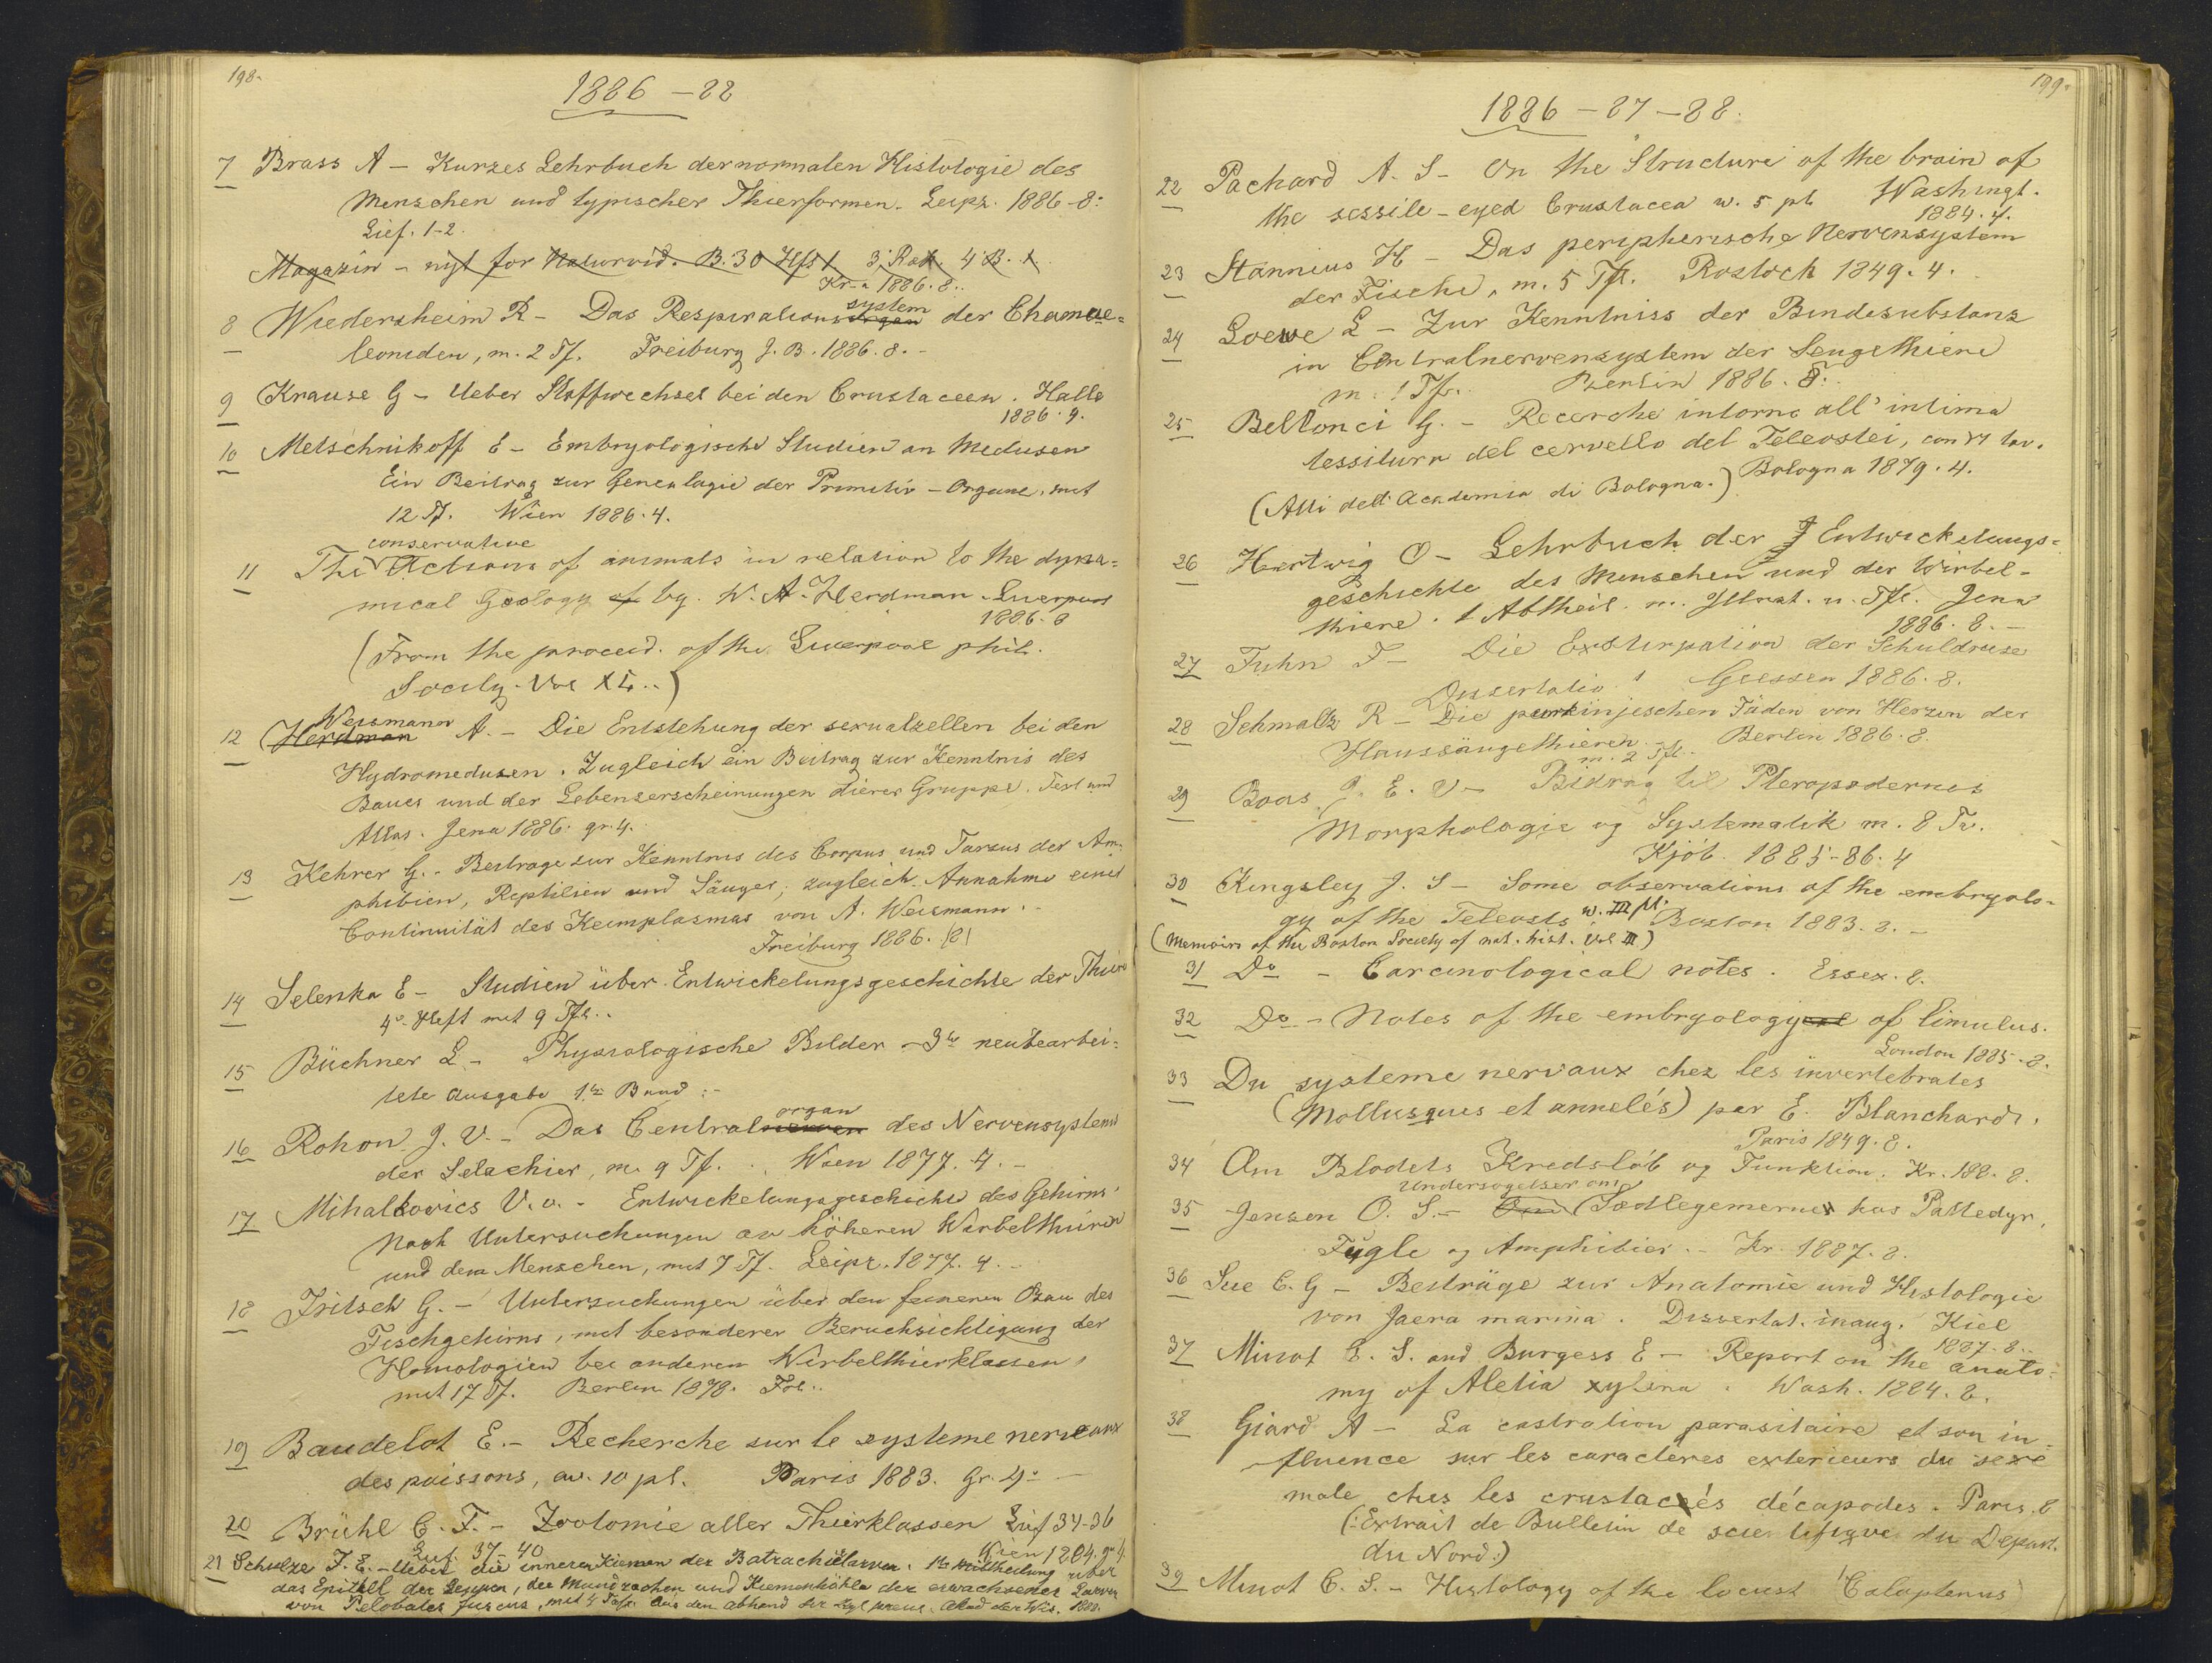 198.
1886 – 88
7 Brass A – Kurzes Lehrbuch der normalen Histologie des
Menschen und typischer Thierformen. Leipz. 1886 – 8º
Lief. 1-2.
Magazin – nyt for Naturvid. B. 30 Hft 1 3 Ræk. 4 B. 1.
Kr-a 1886. 8..
system
8 Wiedersheim R – Das Respirations organ der Chamae=
leoniden, m. 2 Tf. Freiburg J. B. 1886. 8. –
9 Krause G – Ueber Stoffwechsel bei den Crustaceen. Halle
1886. 9.
10 Metschnikoff E – Embryologische Studien an Medusen
Ein Beitrag zur Genealogie der Primitiv – Organe. mit
12 Tf. Wien 1886. 4.
conservative
11 The Actions of animals in relation to the dyna=
mical Geology of by. W. A. Herdman. Liverpool
1886. 8
(From the proceed. of the Liverpool phil.
Society. Vol XL..)
Weismann
12 (Herdman A. – Die Entstehung der sexualzellen bei den
Hydromedusen. Zugleich ein Beitrag zur Kenntnis des
Baues und der Lebenserscheinungen dieser Gruppe. Text und
Atlas. Jena 1886. gr. 4.
13 Kehrer G. – Beitrage zur Kenntnis des Corpus und Tarsus der Am=
phibien, Reptilien und Säuger; zugleich Annahme einer
Continuität des Keimplasmas von A. Weismann. –
Freiburg 1886. (8)
14 Selenka E – Studien über Entwickelungsgeschichte der Thiere
4º Heft mit 9 Tfl..
15 Büchner L – Physiologische Bilder – 3te neubearbei=
tete Ausgabe 1te Band : –
organ
16 Rohon J. V. – Das Centralnerven des Nervensystems
der Selachier, m. 9 Tf. . Wien 1877. 4. –
17 Mihalkovics V. v. – Entwickelungsgeschichte des Gehirns
Nach Untersuchungen an höheren Wirbelthieren
und dem Menschen, mit 7 Tf. Leipz. 1877. 4. –
18 Fritsch G. – Untersuchungen über den feineren Bau des
Fischgehirns, mit besonderer Beruchsichtigung der
Homologien bei anderen Wirbelthierklassen,
mit 17 Tf. Berlin 1878. Fol..
19 Baudelot E. – Recherche sur le systeme nerveaux
des poissons, av. 10 pl. Paris 1883. Gr. 4º –
20 Brühl C. F. – Zootomie aller Thierklassen Lief 34-36
Lief. 37-40 Wien 1884. gr 4.
21 Schulze F. E. – Ueber die inneren Kiemen der Batrachierlarven. 1te Mittheilung über
das Epithell der Lippen, der Mundrachen und Kiemenhöhle der erwachsener Larven
von Pelobates fuscus, mit 4 Tafl. Aus den Abhand der Kgl. preus. Akad der Wis. 1888.
199.
1886 – 87 – 88.
22 Packard A. S – On the Structure of the brain of
the sessile-eyed Crustacea w. 5 pl Washingt.
1884. 4.
23 Stannius H – Das peripherische Nervensystem
der Fische, m. 5 Tfl. Rostock 1849. 4.
24 Loewe L – Zur Kenntniss der Bindesubstanz
in Centralnervensystem der Seugethiere
m. 1 Tfl. Berlin 1886. 8.
25 Bellonci G. – Recerche intorno all' intima
tessitura del cervello del Teleostei, con VI tav.
(Atti dell' Academia di Bologna.) Bologna 1879. 4.
26 Hertwig O – Lehrbuch der Entwickelungs=
geschichte des Menschen und der Wirbel-
thiere. 1 Abtheil. m. Illust. u. Tfl. Jena
1886. 8. –
27 Fuhn F – Die Exstirpation der Schuldruse
Dissertatio. Giessen 1886. 8.
28 Schmaltz R – Die purkinjeschen Fäden von Herzen der
Haussäugethieren. – Berlin 1886. 8.
m. 2 Tfl.
29 Boas J. E. V – Bidrag til Pteropodernes
Morphologie og Systematik m. 8 Tv.
Kjöb. 1885-86. 4
30 Kingsley J. S – Some observations of the embryolo=
gy of the Teleosts w. III pl. Boston 1883. 8. –
(Memoirs of the Boston Society of nat. hist. Vol III)
31 Do – Carcinological notes. Essex. 8.
32 Do – Notes of the embryologycal of limulus.
London 1885. 8.
33 Du systeme nervaux chez les invertebrates
(Mollusques et annelés) par E. Blanchard.
Paris 1849. 8.
34 Om Blodets Kredslöb og Funktion. Kr. 188. 8.
Undersøgelser om
35 Jensen O. S. – Om (Sædlegemerne hos Pattedyr,
Fugle og Amphibier. – Kr. 1887. 8.
36 Sue C. G – Beiträge zur Anatomie und Histologie
von Jaera marina. Dissertat. inaug. Kiel
1887. 8..
37 Minot C. S. and Burgess E – Report on the anato=
my of Aletia xylina. Wash. 1884. 8.
38 Giard A – La castration parasitaire et son in=
fluence sur les caractères exterieurs du sexe
male ches les crustacés décapodes. Paris. 8
(:Extrait de Bulletin de scientifique du Depart.
du Nord.)
39 Minot C. S. – Histology of the locust (Caloptenus)